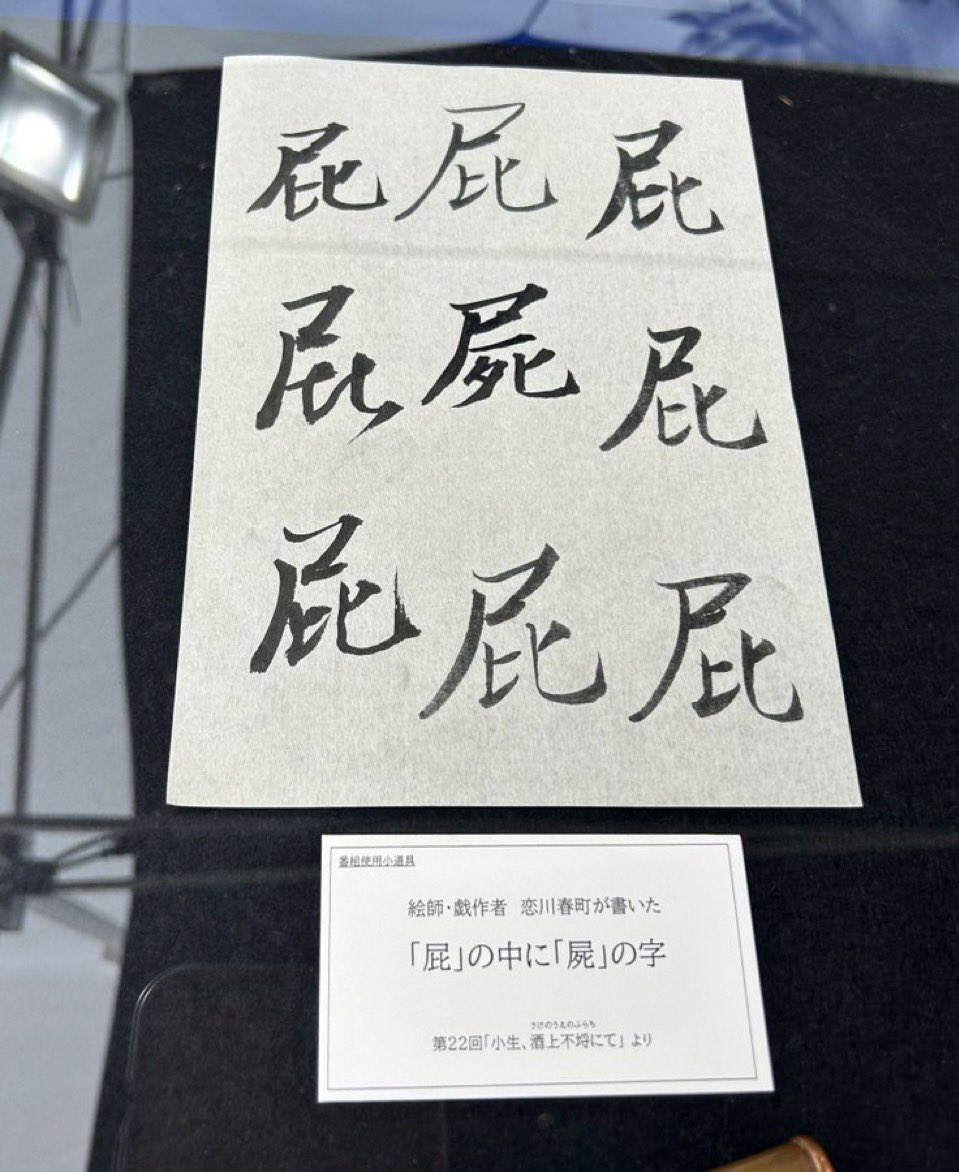 屁 屁 屁
屁 屍 屁
屁 屁 屁
番組使用小道具
絵師・戯作者 恋川春町が書いた
「屁」の中に「屍」の字
さけのうえのふらち
第22回「小生、酒上不埒にて」より